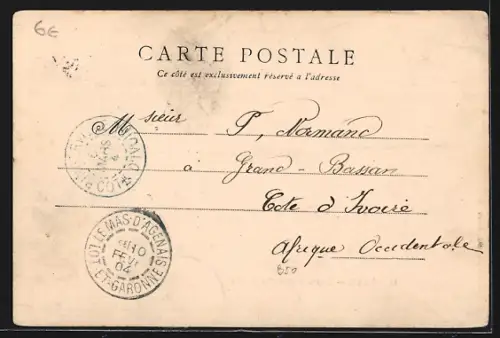 6€
CARTE POSTALE
Ce côté est exclusivement réservé a l'adresse
Msieur F, Normand
à Grand-Bassan
Cote d'Ivoire
Afrique Occidentale
LE MAS-D'AGENAIS
10
FEVR
04
LOT-ET-GARONNE